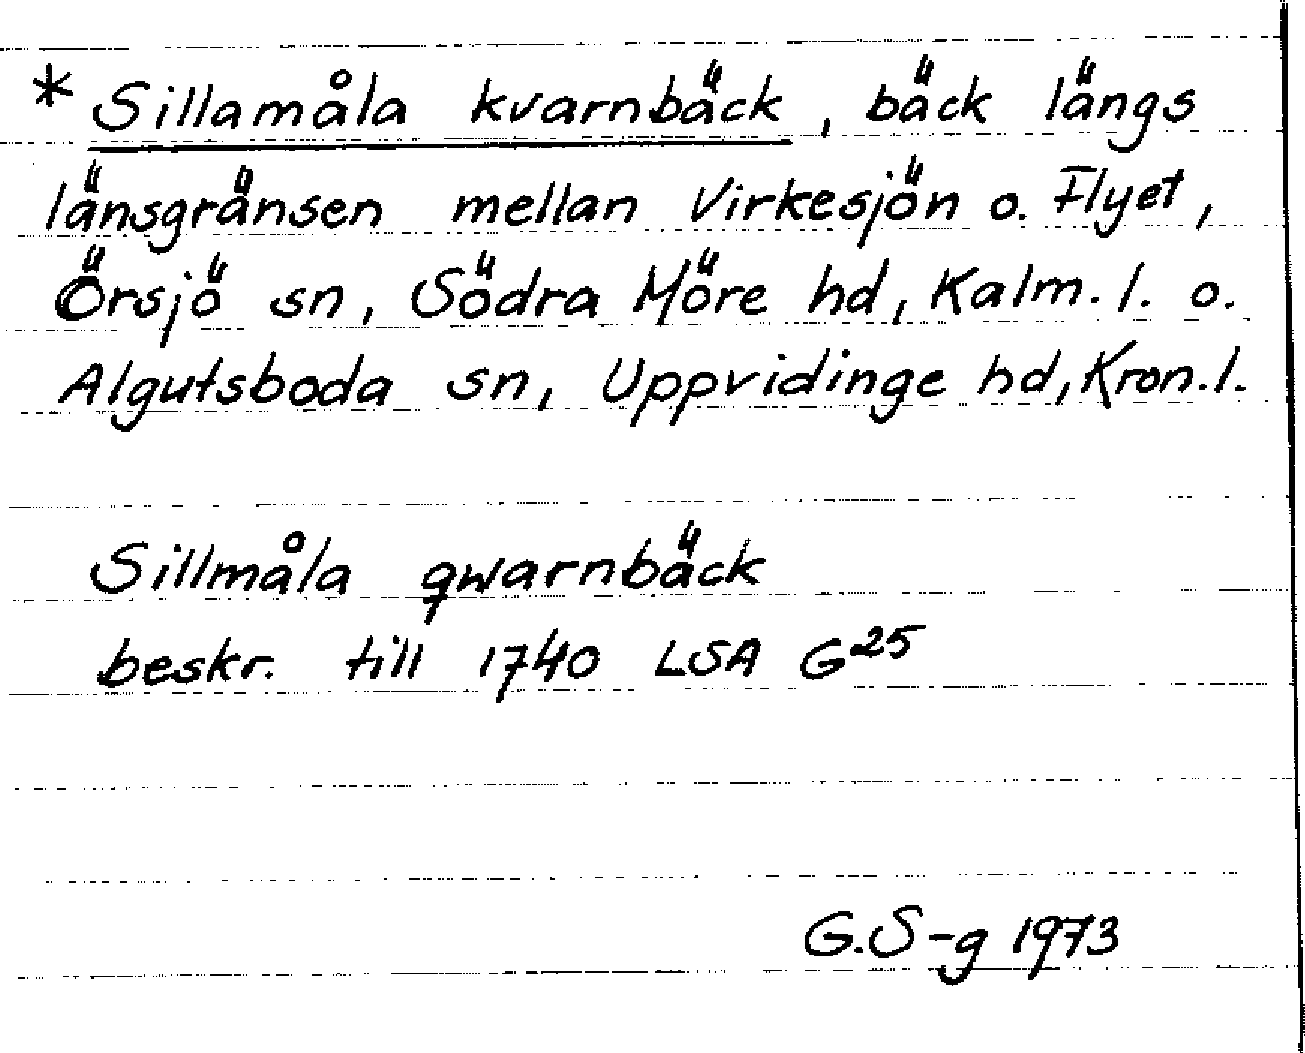 * Sillamåla kvarnbäck, bäck längs
länsgränsen mellan Virkesjön o. Flyet,
Örsjö sn, Södra Möre hd, Kalm. l. o.
Algutsboda sn, Uppvidinge hd, Kron. l.
Sillmåla qwarnbäck
beskr. till 1740 LSA G25
G.S-g 1973